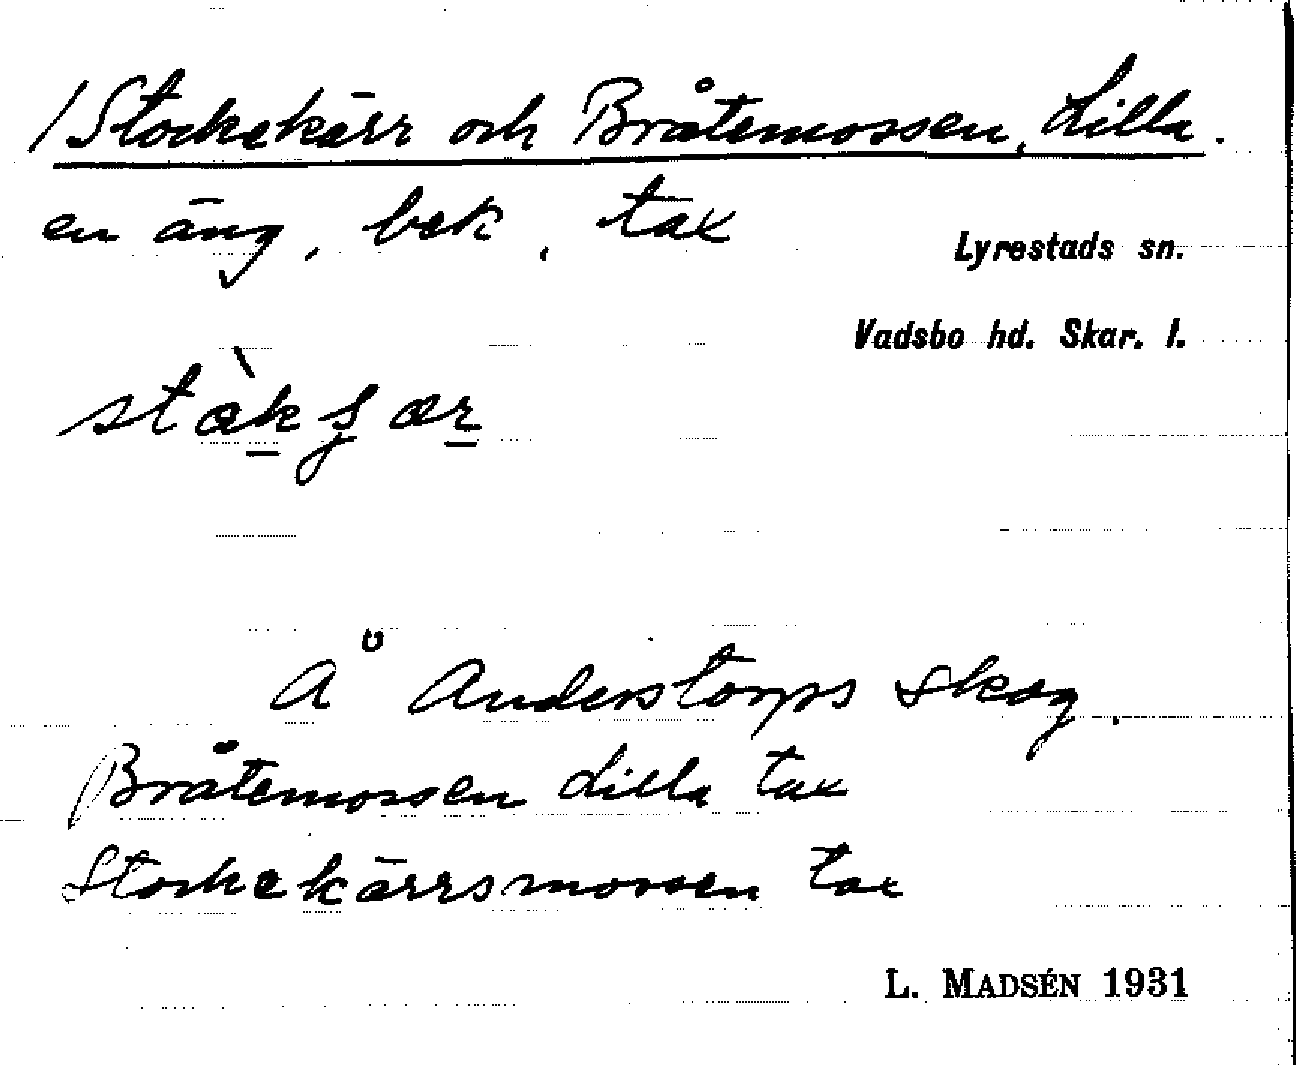 /Stockekärr och Bråtemossen, Lilla.
en äng, bek, tax
Lyrestads sn.
Vadsbo hd. Skar. l.
Å Anderstorps skog.
Bråtemossen Lilla tax
Stockekärrsmossen tax
L. MADSÉN 1931